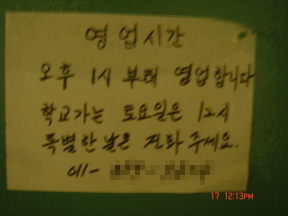 영업시간
오후 1시 부터 영업합니다
학교가는 토요일은 12시
특별한 날은 전화 주세요.
011-
17 12:13PM